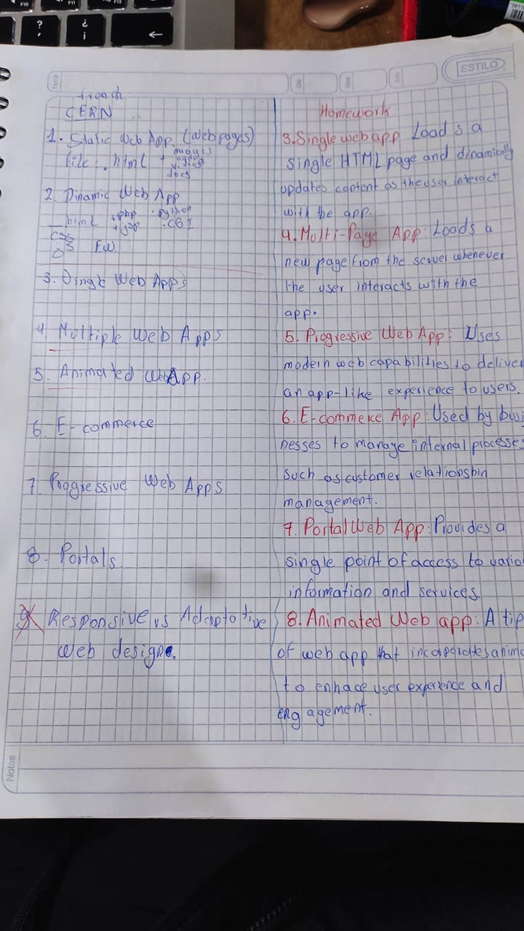 ESTILO
CERN
1. Static Web App (web pages)
file . html + images
video
docs
2. Dinamic Web App
html +php Python
+jsp .CGI
CSS
JS FW
3. Single Web Apps
4. Multiple Web Apps
5. Animated Web App.
6. E-commerce
7. Progressive Web Apps
8. Portals
9. Responsive vs Adaptative
Web design.
Homework
3. Single web app Loads a
single HTML page and dinamically
updates content as the user interact
with the app.
4. Multi-Page App: Loads a
new page from the server whenever
the user interacts with the
app.
5. Progressive Web App: Uses
modern web capabilities to deliver
an app-like experience to users.
6. E-commerce App: Used by busi
nesses to manage internal processes
such as customer relationship
management.
7. Portal Web App: Provides a
single point of access to vario
information and services
8. Animated Web app: A tip
of web app that incorporates anima
to enhace user experience and
engagement.
Notes